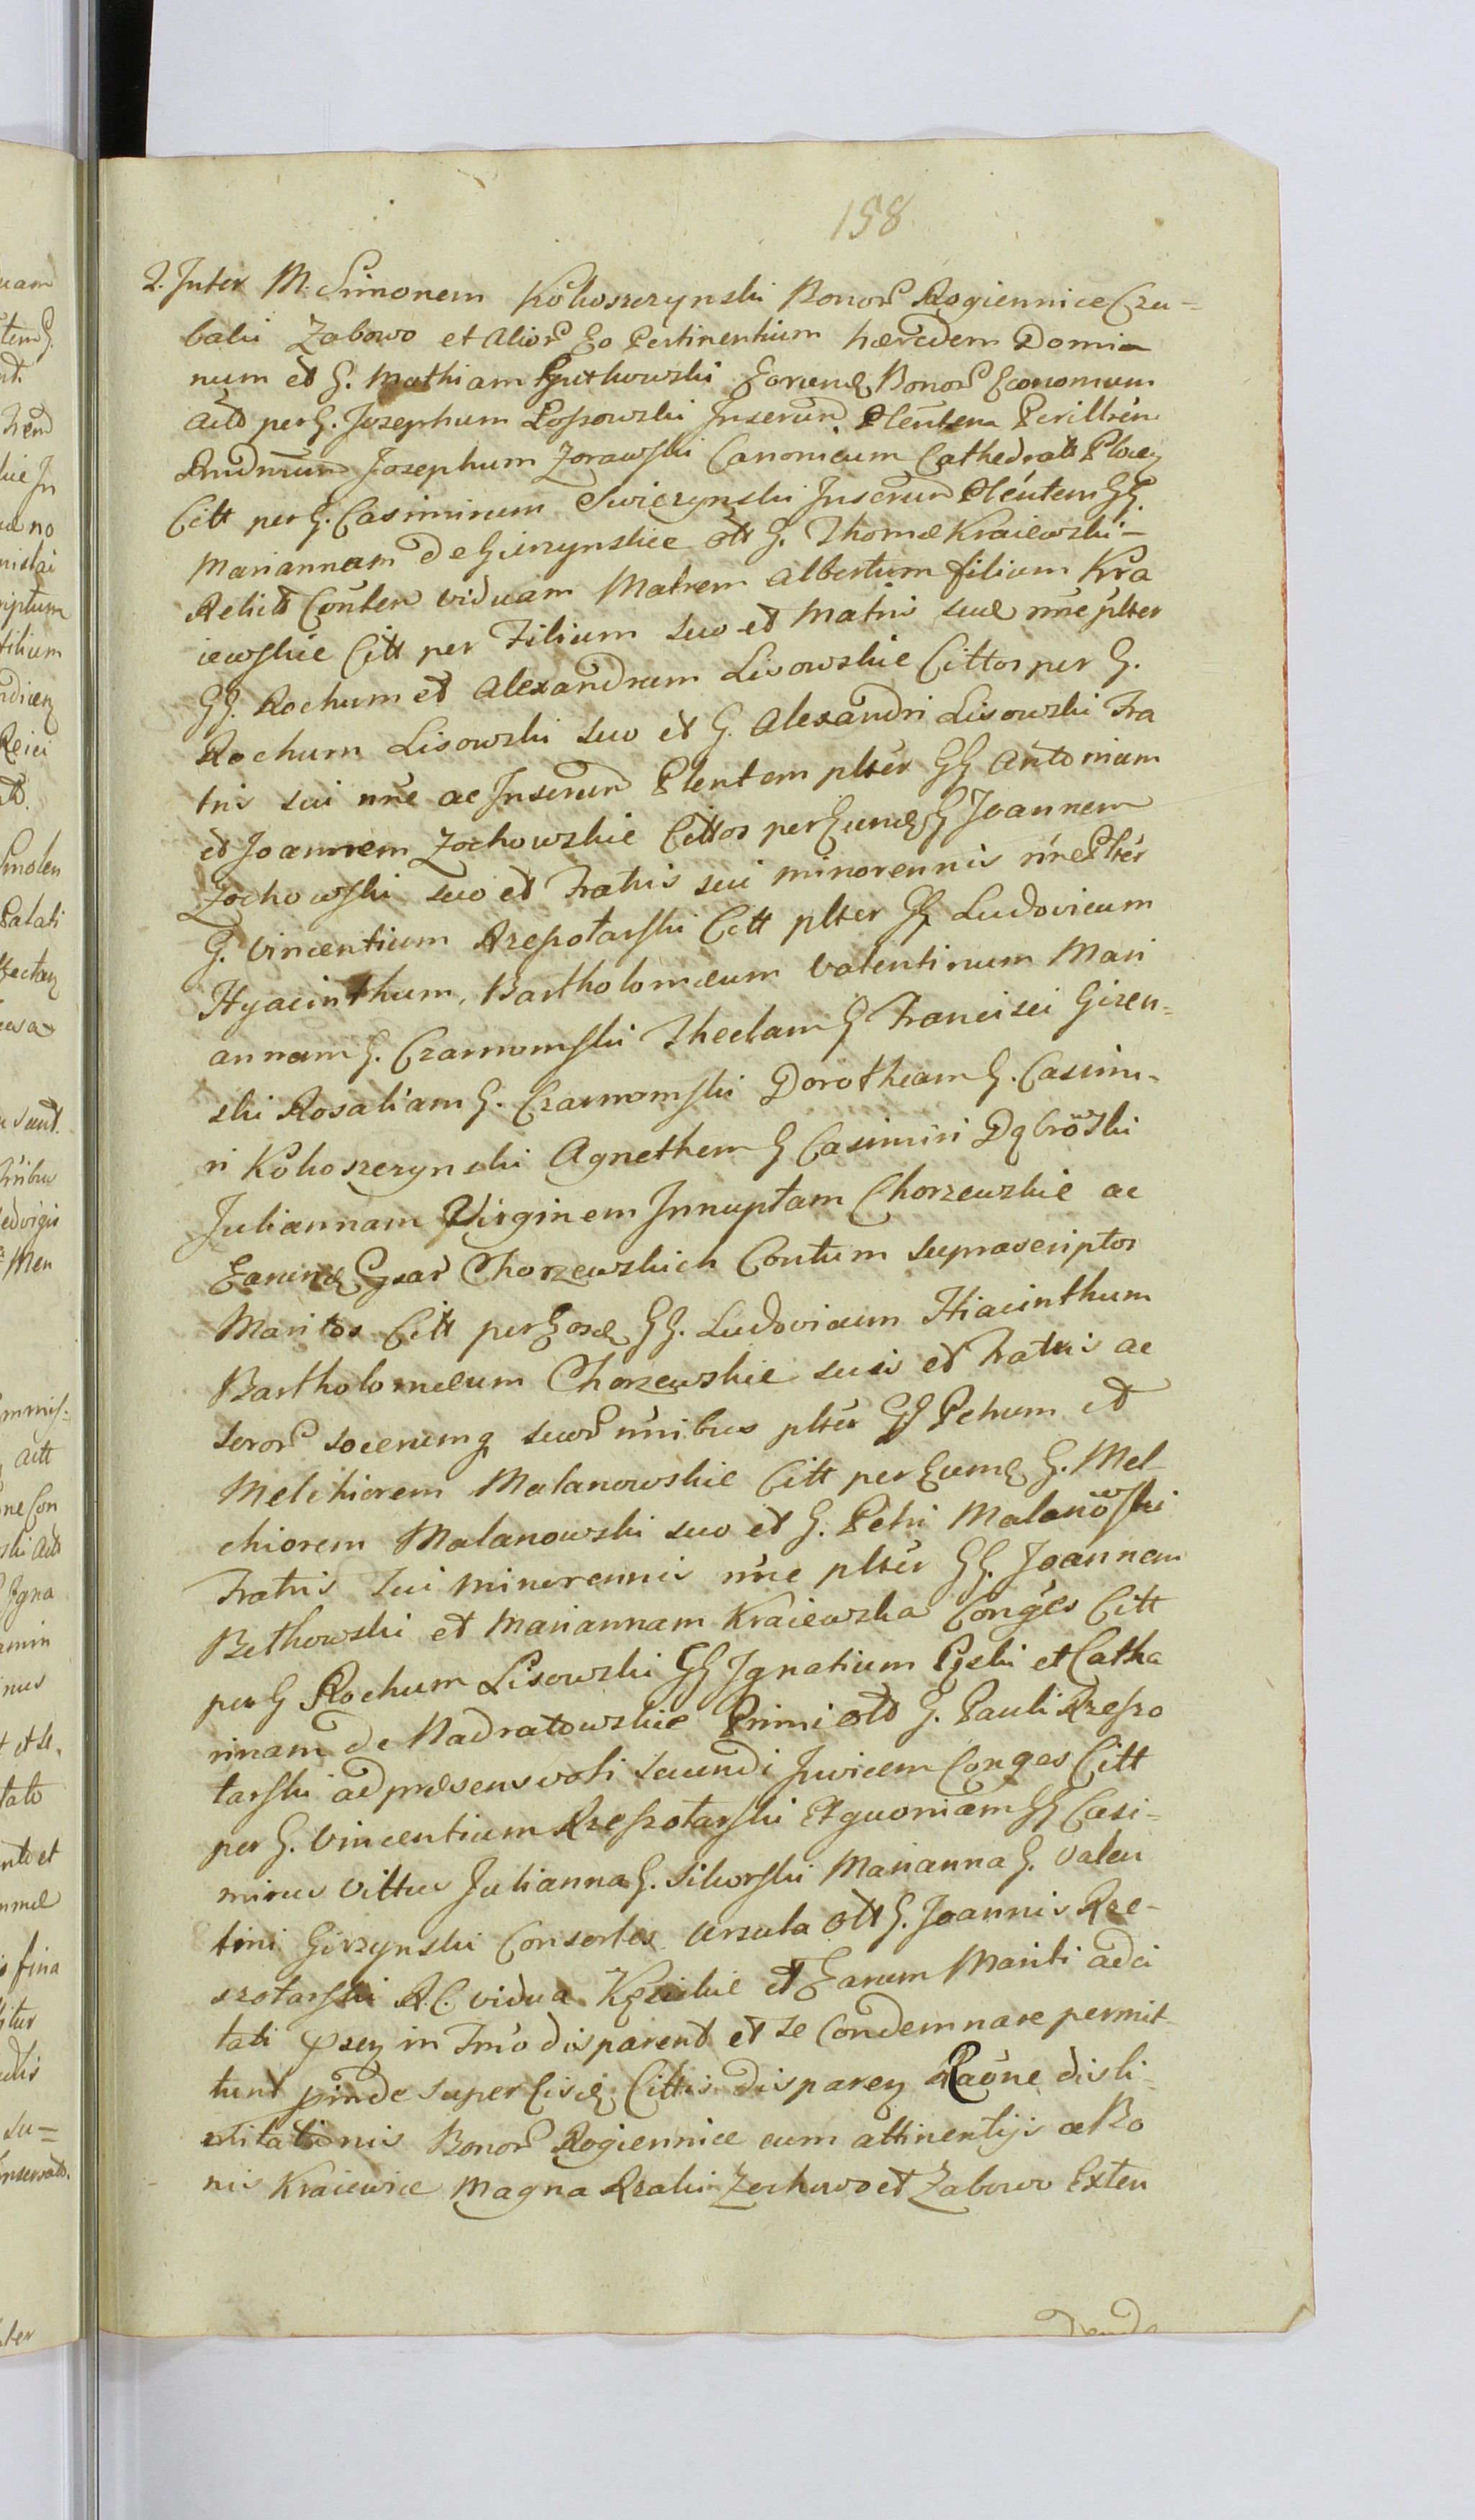 158
2. Inter M. Simonem Kokoszczynski Bonor Rogiennice Czu-
balii Zabowo et Alior Eo Pertinentium hæredem Domi-
num et G. Mathiam Gutkowski Eorund Bonor Economum
Actt per G. Josephum Lossowski Inserund Plentem Perillrem
Rndmum Josephum Zorawski Canonicum Cathedralt Ploceñ
Citt per G. Casimirum Swiezynski Inserund Plentem GG.
Mariannam de Gierzynskie olt G. Thomæ Kraiewski -
Relict Conten viduam Matrem Albertum filium Kra
iewskie Citt per Filium suo et Matris suæ nne plter
GG. Rochum et Alexandrum Lisowskie Cittos per G.
Rochum Lisowski suo et G. Alexandri Lisowski Fra
tris sui nne ac Inserund Plentem plter GG Antonium
et Joannem Zochowskie Cittos per Eund G Joannem
Zochowski suo et Fratris sui minorennis nne Plter
G. Vincentium Rzeszotarski Citt plter GG Ludovicum
Hyacinthum, Bartholomæum Valentinum Mari
annam G. Czarnomski Theclam G Francisci Gizen-
ski Rosaliam G. Czarnomski Dorotheam G. Casimi-
ri Kokoszczynski Agnethem G Casimiri Dąbrowski
Juliannam Virginem Innuptam Chorzewskie ac
Earund Chorzewskich Contum suprascriptos
Maritos Citt per Eosd GG. Ludovicum Hiacinthum
Bartholomæum Chorzewskie suis et Fratris ac
soror socerumq suor nnibus plter GG Petrum et
Melchiorem Malanowskie Citt per Eumd G. Mel
chiorem Malanowski suo et G. Petri Malanowski
Fratris sui minorennis nne plter GG. Joannem
Bethowski et Mariannam Kraiewska Conges Citt
per G Rochum Lisowski GG Ignatium et Catha
rinam de Nadratowskie Primi olt G. Pauli Rzeszo
tarski ad præsens voti secundi Invicem Conges Citt
per G. Vincentium Rzeszotarski Et quoniam GG Casi-
mirus Vittus Julianna G. Sikorski Marianna G. Valen
tini Girzynski Consortes Ursula olt G. Joannis Rze-
szotarski R.C. vidua et Earum Mariti adci
tati in Tmo disparent et se Condemnare permit-
tunt proinde super Eisd Cittis disparen Raone disli-
mitationis Bonor Rogiennice cum attinentijs a Bo
nis Kraiewice Magna Rzali Zochowo et Zabowo Exten
dende